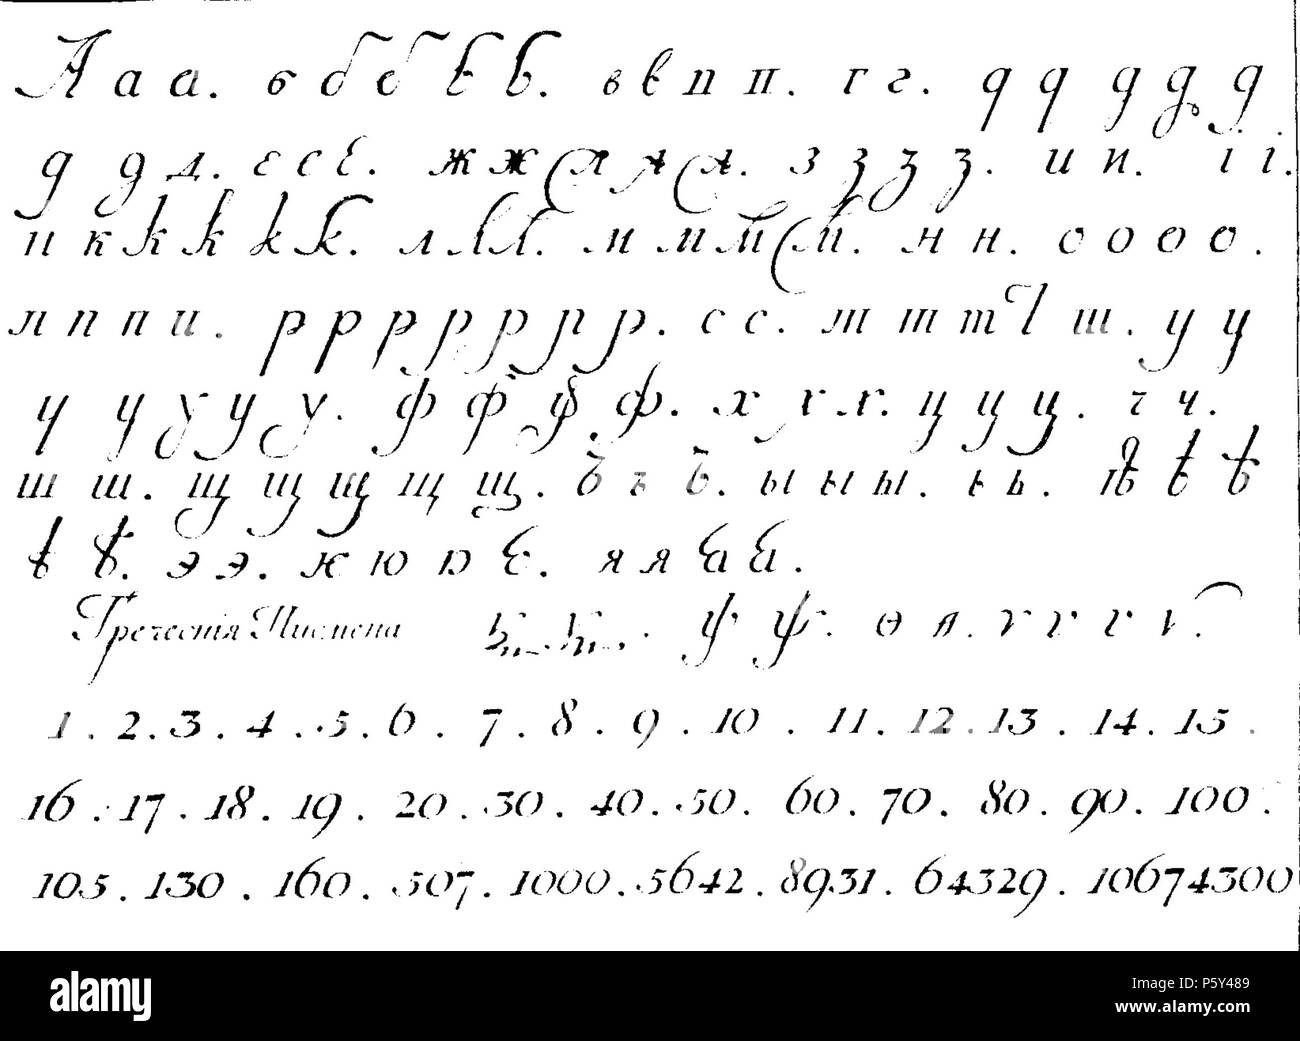 А а а . в б б ѣ ъ . в в п п . г г . д д д д д .
д д д . є с є . ж ж ж ж ж . з з з з . и и . і і .
и к к к к к . л л л . м м м м . н н . о о о о .
п п п п . р р р р р р р . с с . т т т т т . у у
у у у у у . ф ф ф ф . х х х . ц ц ц . ч ч .
ш ш . щ щ щ щ щ . ъ ъ ъ . ы ы ы . ь ь . ѣ ѣ ѣ
ѣ ѣ . э э . ю ю ю є . я я я я .
Греческія Писмена ѱ ѱ . ѳ ѳ . ѵ ѵ ѵ ѵ .
1 . 2 . 3 . 4 . 5 . 6 . 7 . 8 . 9 . 10 . 11 . 12 . 13 . 14 . 15 .
16 . 17 . 18 . 19 . 20 . 30 . 40 . 50 . 60 . 70 . 80 . 90 . 100 .
105 . 130 . 160 . 507 . 1000 . 5642 . 8931 . 64329 . 10674300
alamy
Image ID: P5Y489
www.alamy.com